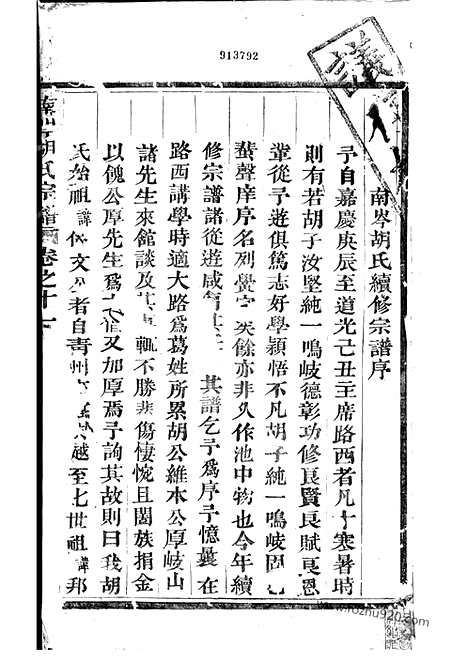 913792
南岑胡氏續修宗譜序
予自嘉慶庚辰至道光己丑主席路西者凡十寒暑時
則有若胡子汝堅純一鳴岐德彰功修良賢良賦良恩
輩從予遊俱篤志好學穎悟不凡胡子純一鳴岐固已
蜚聲庠序名列黌宮 餘亦非久作池中物也今年續
修宗譜諸從遊咸 其譜乞予為序予憶曩在
路西講學時適大路為葛姓所累胡公維本公厚岐山
諸先生來館談及其 輒不勝悲傷悽惋且闔族捐金
以餽公厚先生為 又加厚焉予詢其故則曰我胡
氏始祖諱 文 者自青州 越至七世祖諱邦
胡氏宗譜 卷之十一
www.infozhu97.com